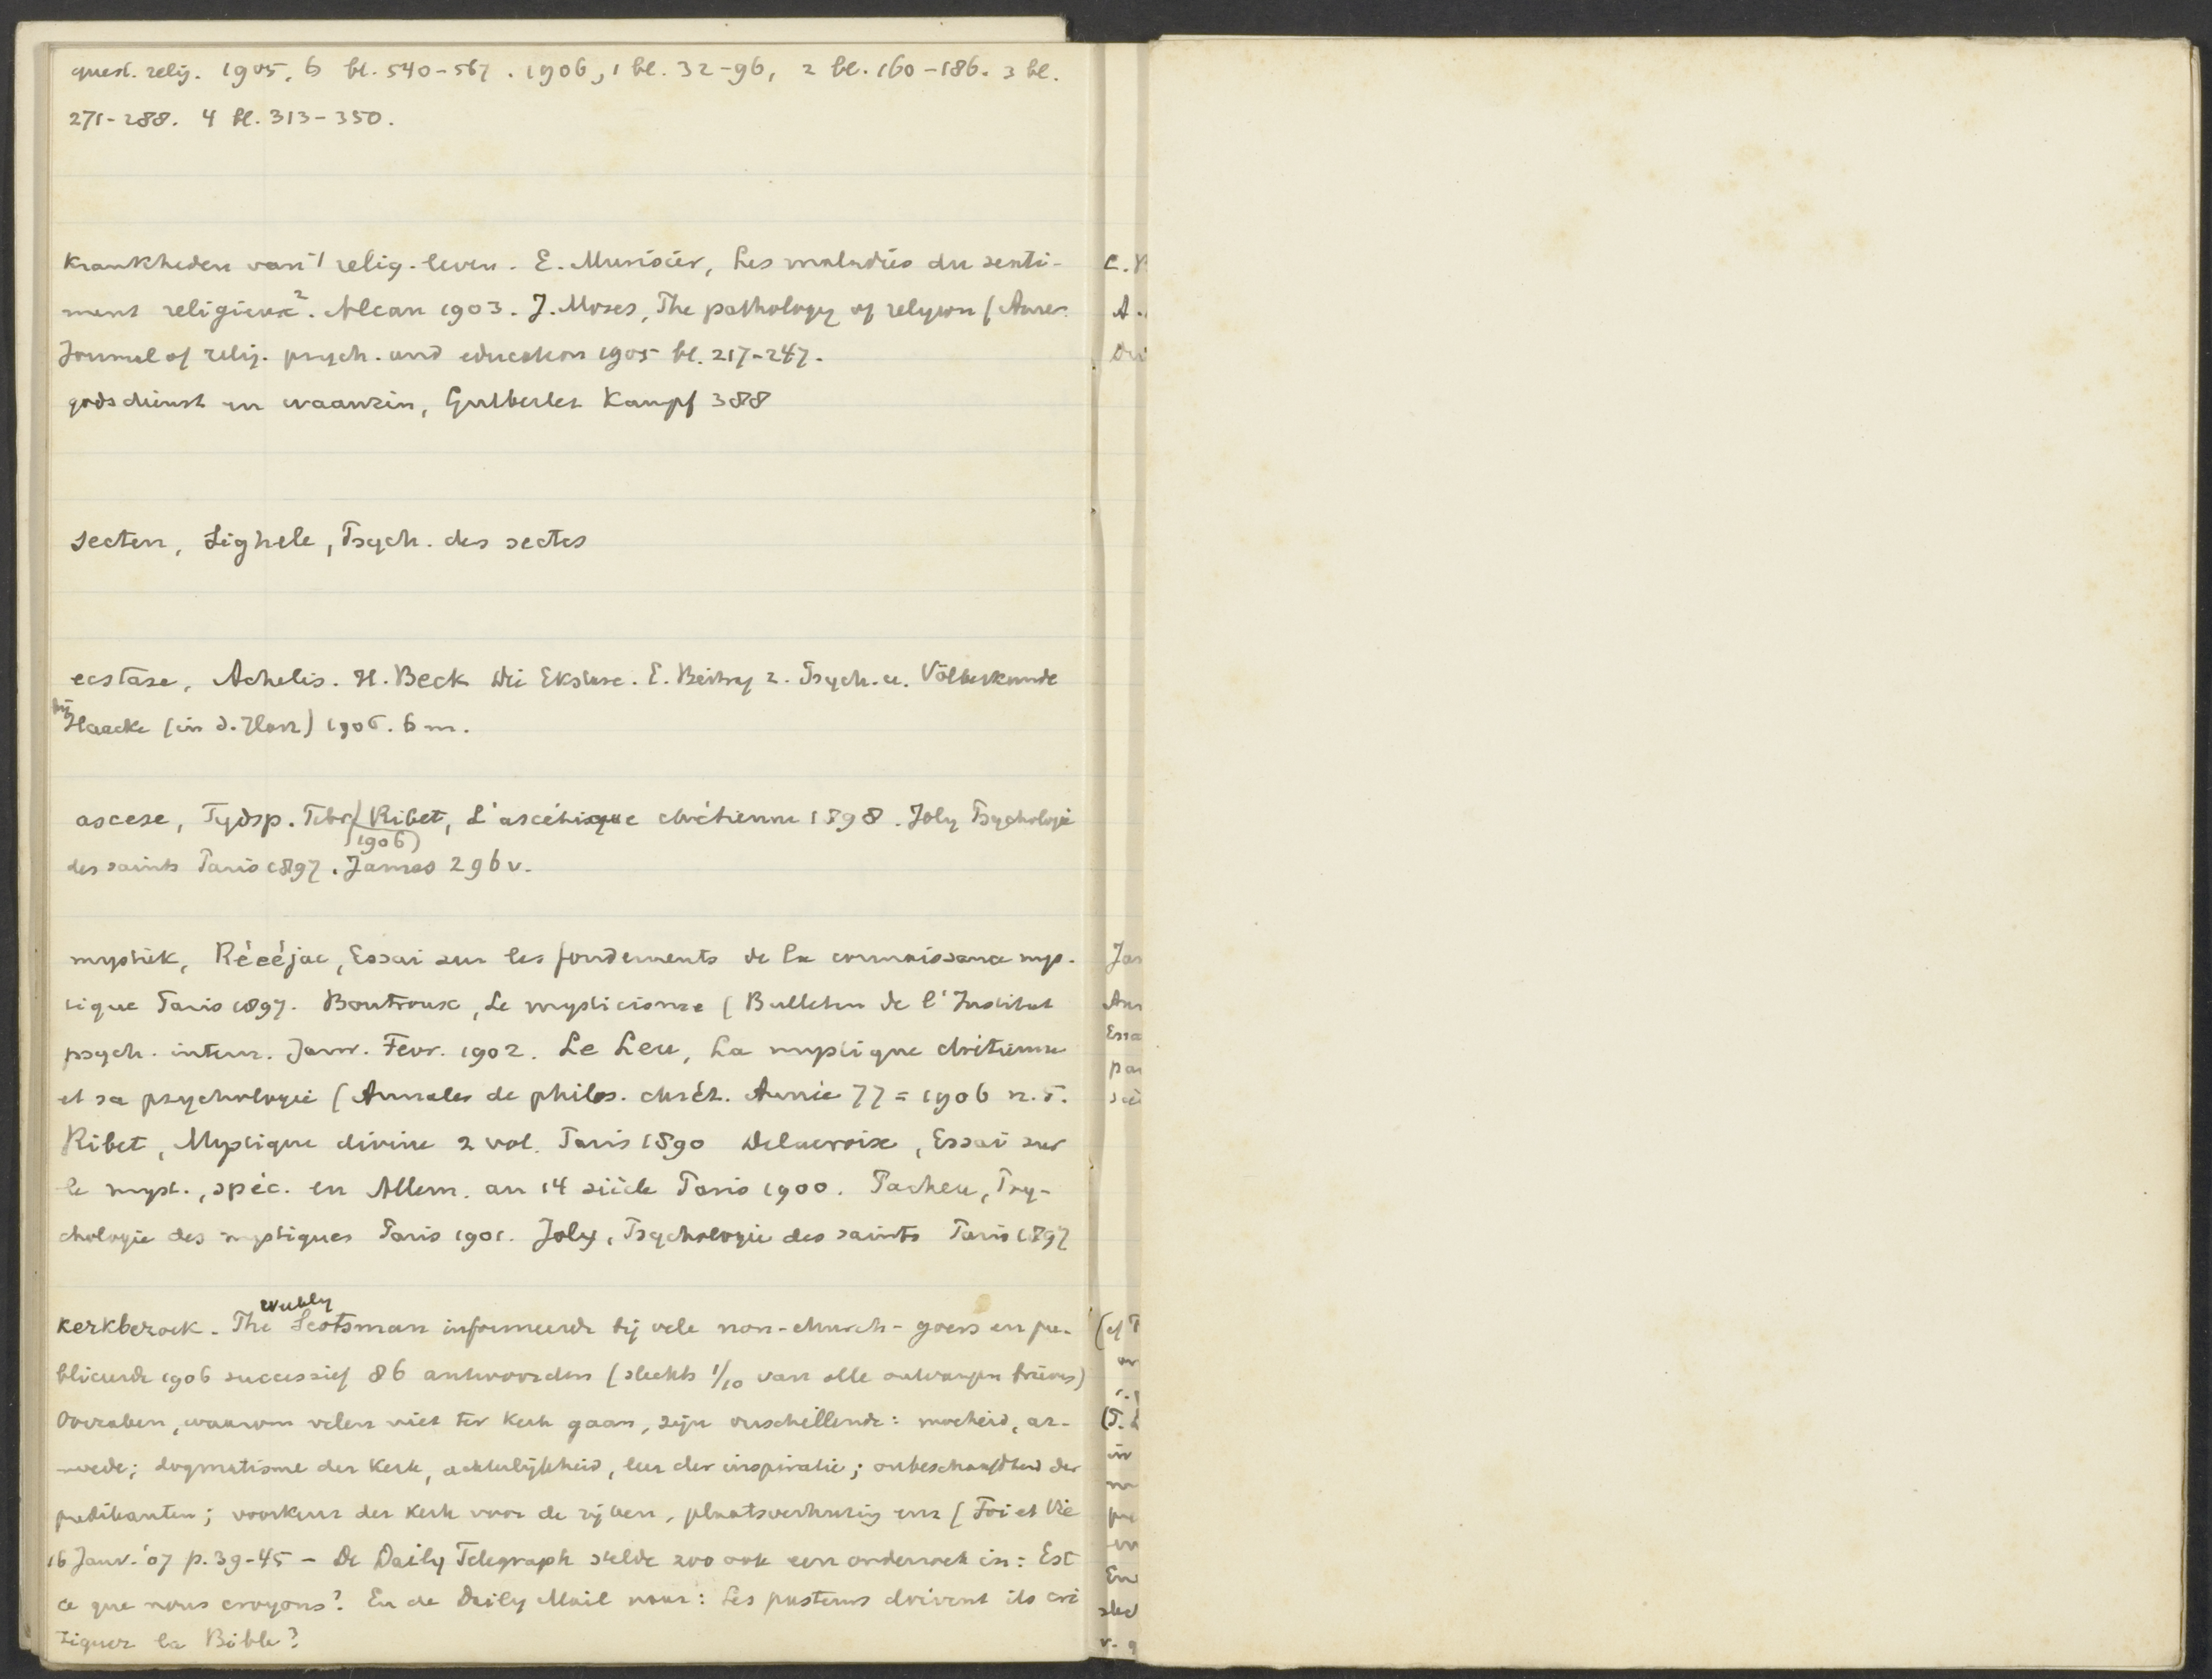 quest. relig. 1905, 6 bl. 540-567. 1906, 1 bl. 32-96, 2 bl. 160-186. 3 bl.
271-288. 4 bl. 313-350.
Krankheden van 't relig. leven. E. Murisier, Les maladies du senti-
ment religieux². Alcan 1903. J. Moses, The pathology of religion (Amer.
Journal of relig. psych. and education 1905 bl. 217-247.
godsdienst en waanzin, Gutberlet Kampf 388
secten, Sighele, Psych. des sectes
ecstase, Achelis. H. Beck Die Ekstase. E. Beitrag z. Psych. u. Völkerkunde
bij Haacke (in d. Harz) 1906. 6 m.
ascese, Tydsp. Febr. Ribet, L'ascétique chrétienne 1898. Joly Psychologie
(1906)
des saints Paris 1897. James 296 v.
mystiek, Récéjac, Essai sur les fondements de la connaissance mys-
tique Paris 1897. Boutroux, Le mysticisme (Bulletin de l'Institut
psych. intern. Janv. Févr. 1902. Le Leu, La mystique chrétienne
et sa psychologie (Annales de philos. chrét. Année 77 = 1906 n. 5.
Ribet, Mystique divine 2 vol. Paris 1890 Delacroix, Essai sur
le myst., spéc. en Allem. au 14 siècle Paris 1900. Pacheu, Psy-
chologie des mystiques Paris 1901. Joly, Psychologie des saints Paris 1897
weekly
kerkbezoek. The Scotsman informeerde bij vele non-church-goers en pu-
bliceerde 1906 successief 86 antwoorden (slechts 1/10 van alle ontvangen brieven)
Oorzaken, waarom velen niet ter kerk gaan, zijn verschillende: moeheid, ar-
moede; dogmatisme der kerk, achterlijkheid, leer der inspiratie; onbeschaafdheid der
predikanten; voorkeur der kerk voor de rijken, plaatsverhuring enz (Foi et Vie
16 Janv. '07 p. 39-45 - De Daily Telegraph stelde zoo ook een onderzoek in: Est
ce que nous croyons? En de Daily Mail naar: Les pasteurs doivent ils cri
tiquer la Bible?